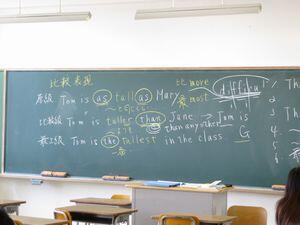 比較表現
原級 Tom is as tall as Mary
比 more
最 most
difficu
比較級 Tom is taller than Jane → Tom is
than any other
最上級 Tom is the tallest in the class
G
1
2
3
4
5
6